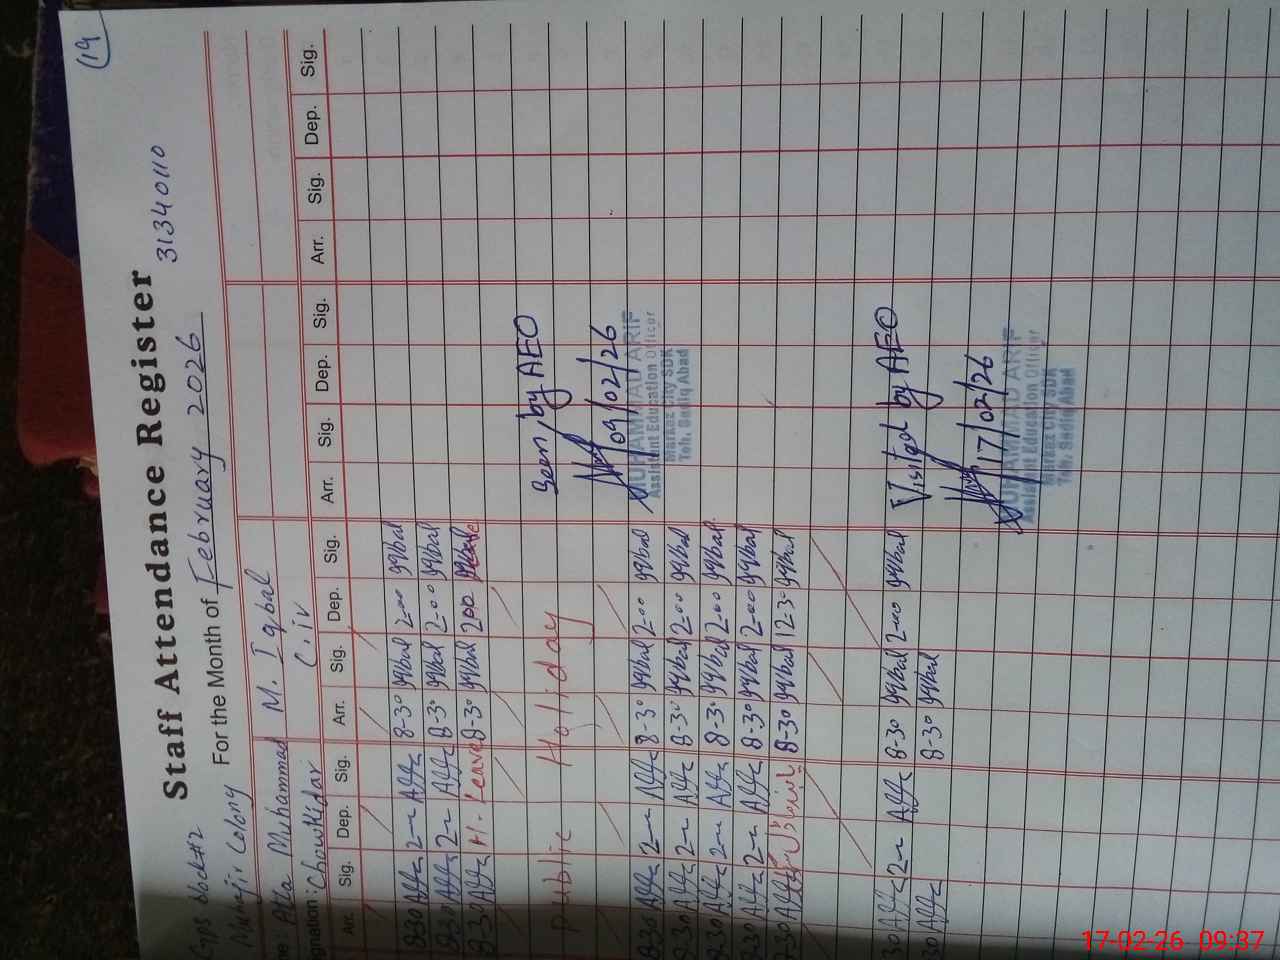 (19)
Staff Attendance Register
31340110
GPS block#2
Muhajir Colony
For the Month of February 2026
Atta Muhammad M. Iqbal
gnation: Chowkidar C.iv
Arr. Sig. Dep. Sig. Arr. Sig. Dep. Sig. Arr. Sig. Dep. Sig. Arr. Sig. Dep. Sig.
8-30 2- 8-30 Iqbal 2-00 Iqbal
8-30 2- 8-30 Iqbal 2-00 Iqbal
8-30 Leave 8-30 Iqbal 200
Seen by AEO
Public Holiday
09/02/26
8-30 2- 8-30 Iqbal 2-00 Iqbal
MUHAMMAD ARIF
Assistent Education Officer
Markaz City SDK
Teh. Sadiq Abad
8-30 2- 8-30 Iqbal 2-00 Iqbal
8-30 2- 8-30 Iqbal 2-00 Iqbal
8-30 2- 8-30 Iqbal 2-00 Iqbal
8-30 8-30 Iqbal 12-30 Iqbal
30 2- 8-30 Iqbal 2-00 Iqbal
Visited by AEO
30 8-30 Iqbal
17/02/26
MUHAMMAD ARIF
Assistent Education Officer
Markaz City SDK
Teh. Sadiq Abad
17-02-26 09:37